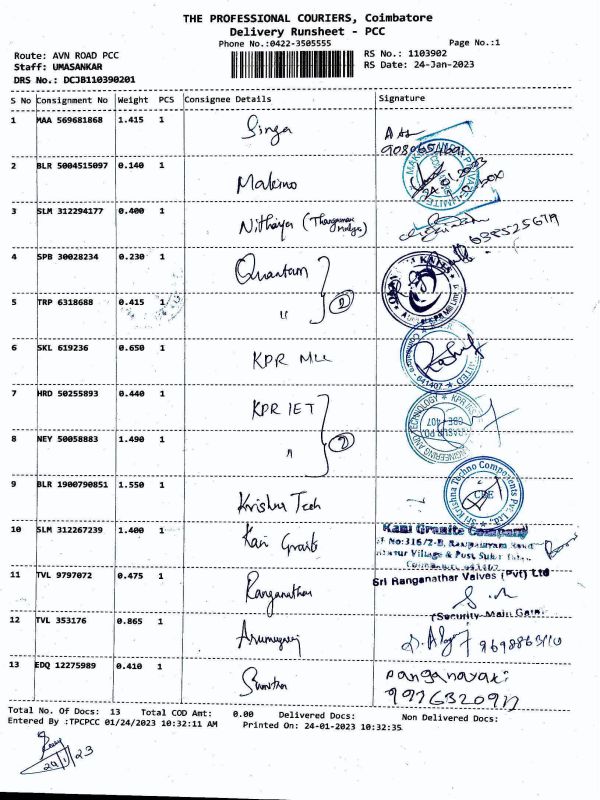 THE PROFESSIONAL COURIERS, Coimbatore
Delivery Runsheet - PCC
Phone No.:0422-3505555 Page No.:1
Route: AVN ROAD PCC RS No.: 1103902
Staff: UMASANKAR RS Date: 24-Jan-2023
DRS No.: DCJB110390201
S No Consignment No Weight PCS Consignee Details Signature
1 MAA 569681868 1.415 1 Singa
2 BLR 5004515097 0.140 1 Makino
3 SLM 312294177 0.400 1 Nithaya
4 SPB 30028234 0.230 1 Quantam
5 TRP 6318688 0.415 1 "
2
6 SKL 619236 0.650 1 KPR Mill
7 HRD 50255893 0.440 1 KPR IET
8 NEY 50058883 1.490 1 "
2
9 BLR 1900790851 1.550 1 Krishna Tech
Sri Krishna Techno Components Pvt. Ltd.,
CBE
10 SLM 312267239 1.400 1 Kani Granite
Kani Granite Company
11 TVL 9797072 0.475 1 Ranganathar
Sri Ranganathar Valves (Pvt) Ltd
(Security-Main Gate
12 TVL 353176 0.865 1 Arumugaraj
9698863110
13 EDQ 12275989 0.410 1 Sumithra
Ranganayaki
Total No. Of Docs: 13 Total COD Amt: 0.00 Delivered Docs: Non Delivered Docs:
Entered By :TPCPCC 01/24/2023 10:32:11 AM Printed On: 24-01-2023 10:32:35